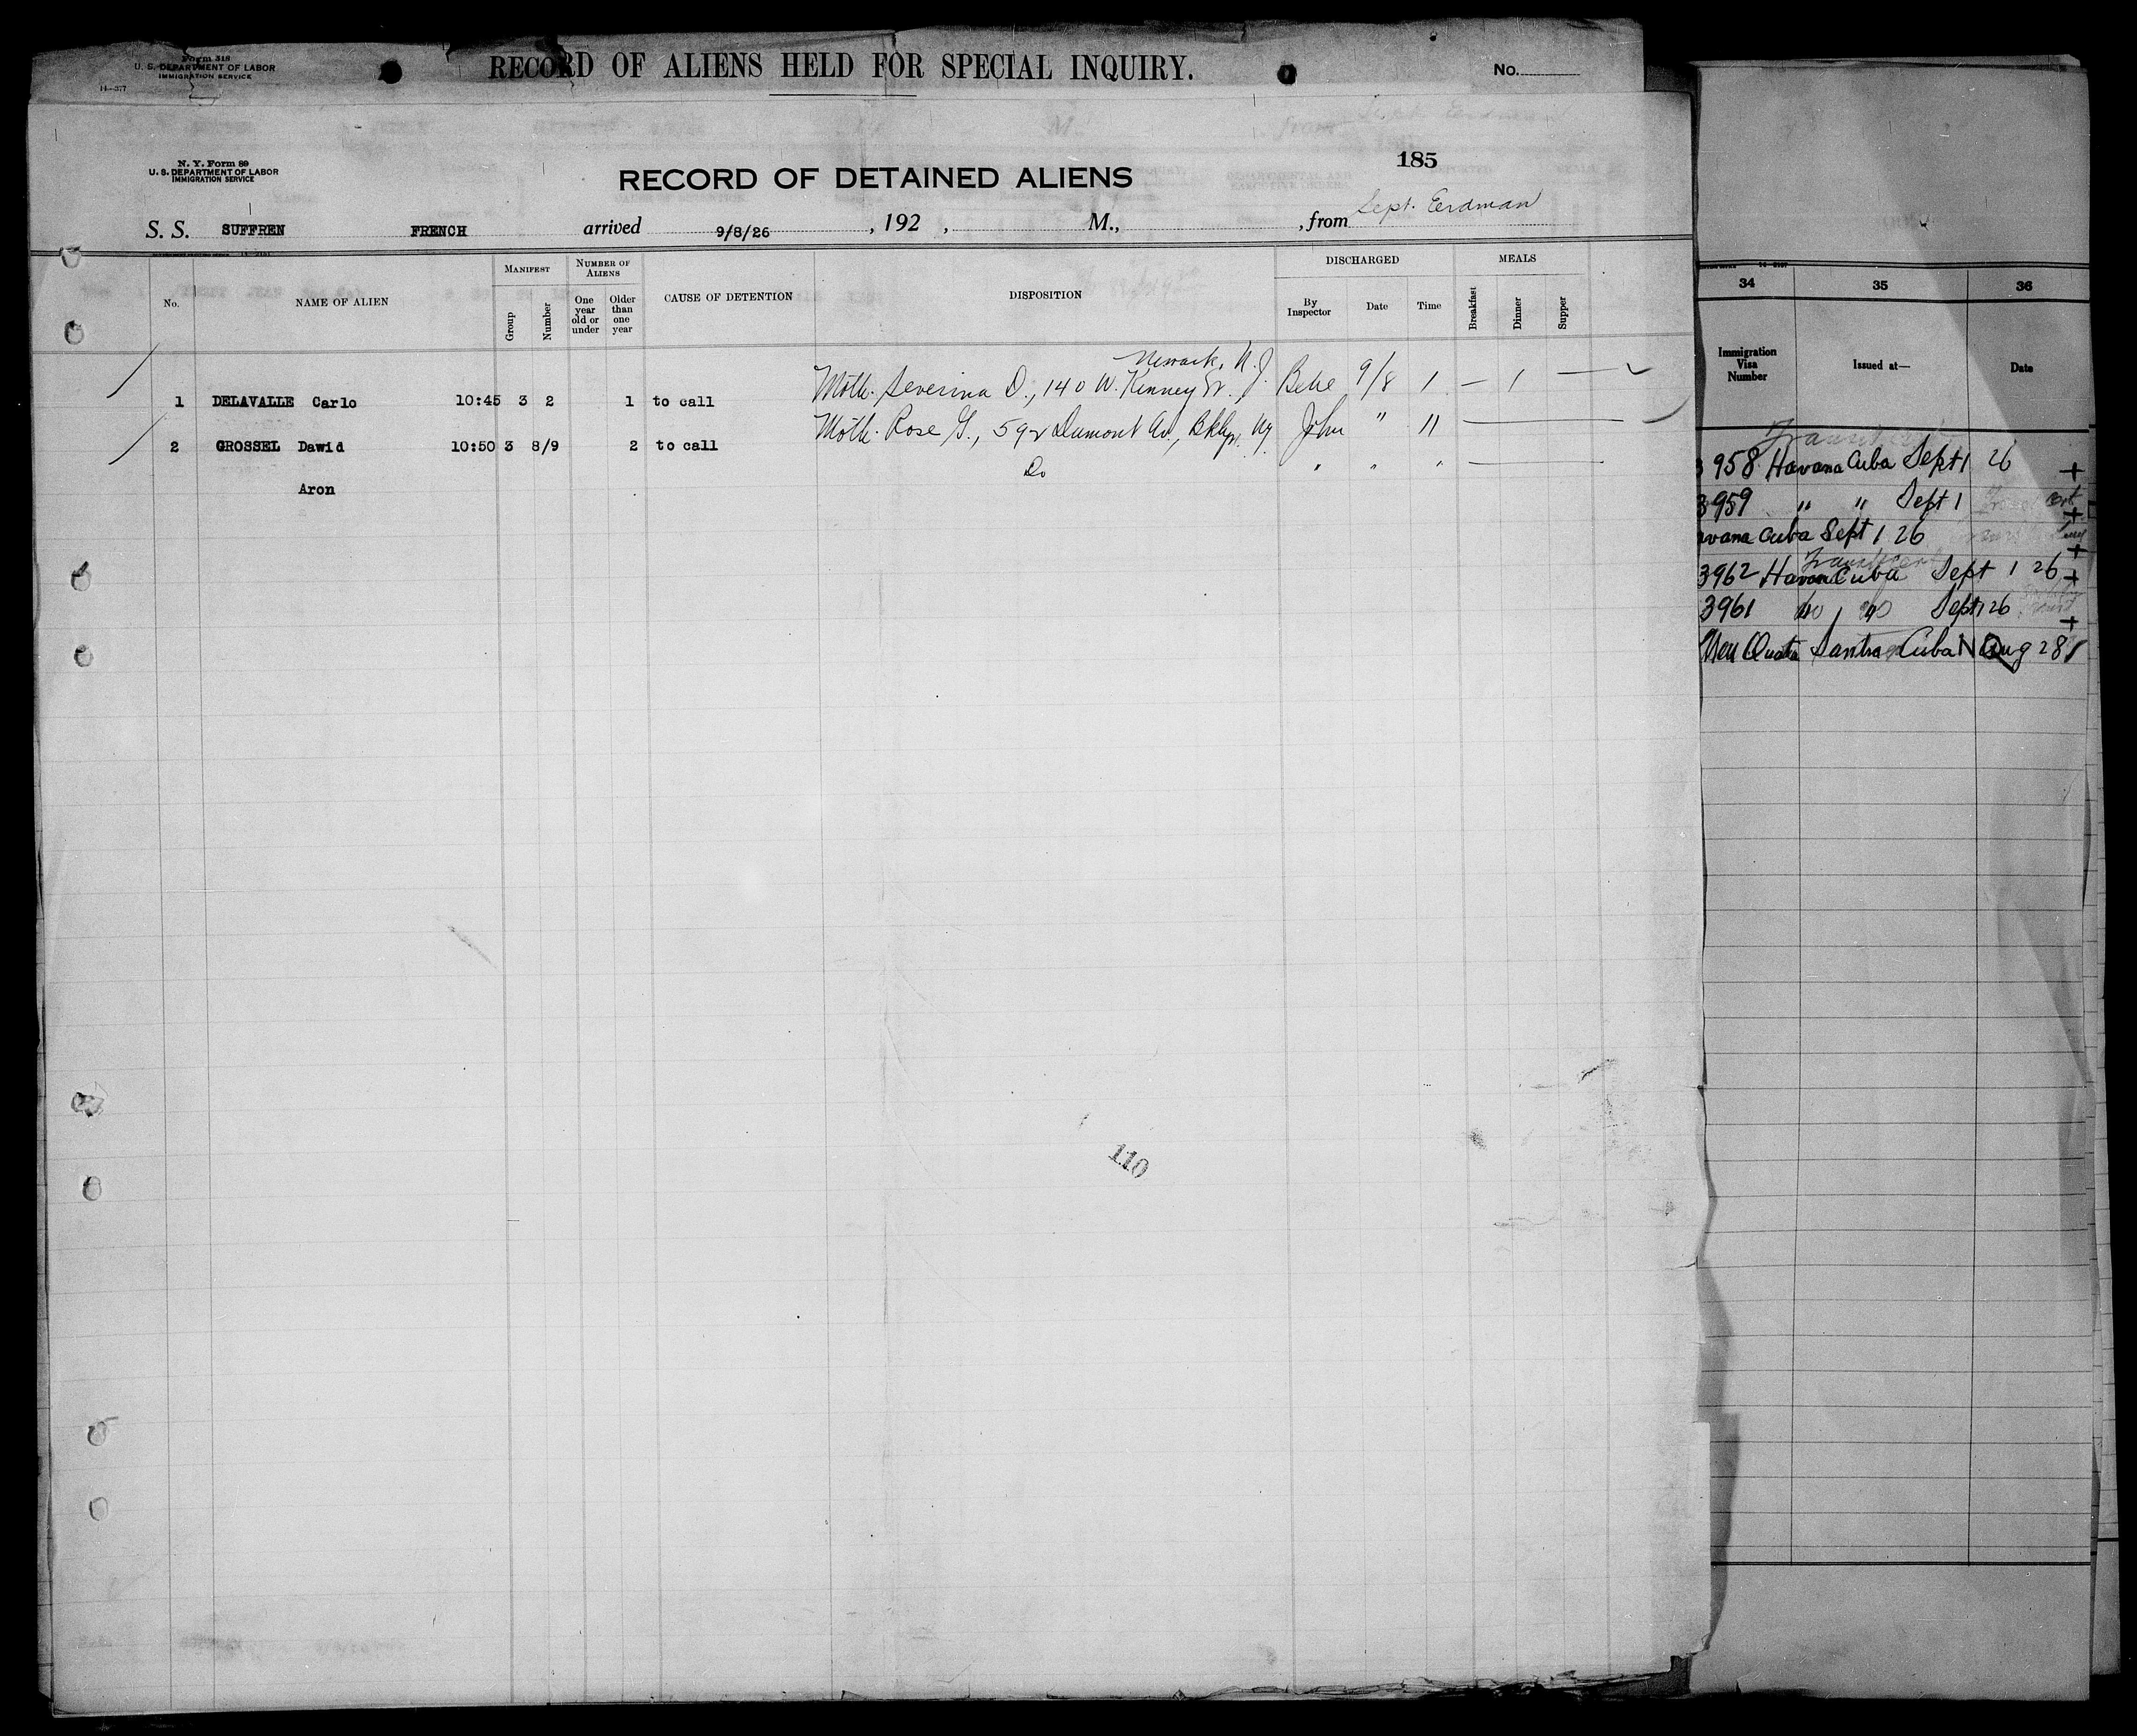 Form 318
U. S. DEPARTMENT OF LABOR
IMMIGRATION SERVICE
14—377
RECORD OF ALIENS HELD FOR SPECIAL INQUIRY.
No.
N. Y. Form 89
U. S. DEPARTMENT OF LABOR
IMMIGRATION SERVICE
RECORD OF DETAINED ALIENS
185
S. S. SUFFREN FRENCH arrived 9/8/26 , 192 , M., , from Sept. Erdman
No. NAME OF ALIEN MANIFEST Group Number NUMBER OF ALIENS One year old or under Older than one year CAUSE OF DETENTION DISPOSITION DISCHARGED By Inspector Date Time MEALS Breakfast Dinner Supper
Newark, N. J.
1 DELAVALLE Carlo 10:45 3 2 1 to call Moth. Severina D., 140 W. Kinney St. 9/8 1 — 1 —
2 GROSSEL Dawid 10:50 3 8/9 2 to call Moth. Rose G., 592 Dumont Av., Bklyn. Ny. John " 11
Aron Do " " "
110
34 35 36
Immigration Visa Number Issued at— Date
958 Havana Cuba Sept 1 26 +
3959 " " Sept 1 +
avana Cuba Sept 1 26 +
3962 Havana Cuba Sept 1 26 +
3961 do do Sept 1 26 +
Non Quota Cuba Aug 28